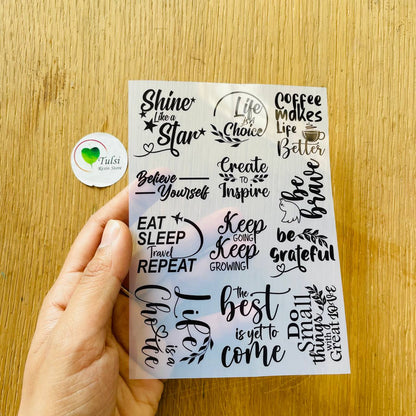 Shine
Like a
Star
Life
is a
Choice
COFFEE
MAKES
Life
Better
Tulsi
Resin Store
Believe
Yourself
Create
TO
Inspire
be
brave
EAT
SLEEP
Travel
REPEAT
Keep
GOING
Keep
GROWING
be
grateful
Life
is a
Choice
the
best
is yet to
come
Do
Small
things
with a
Great love